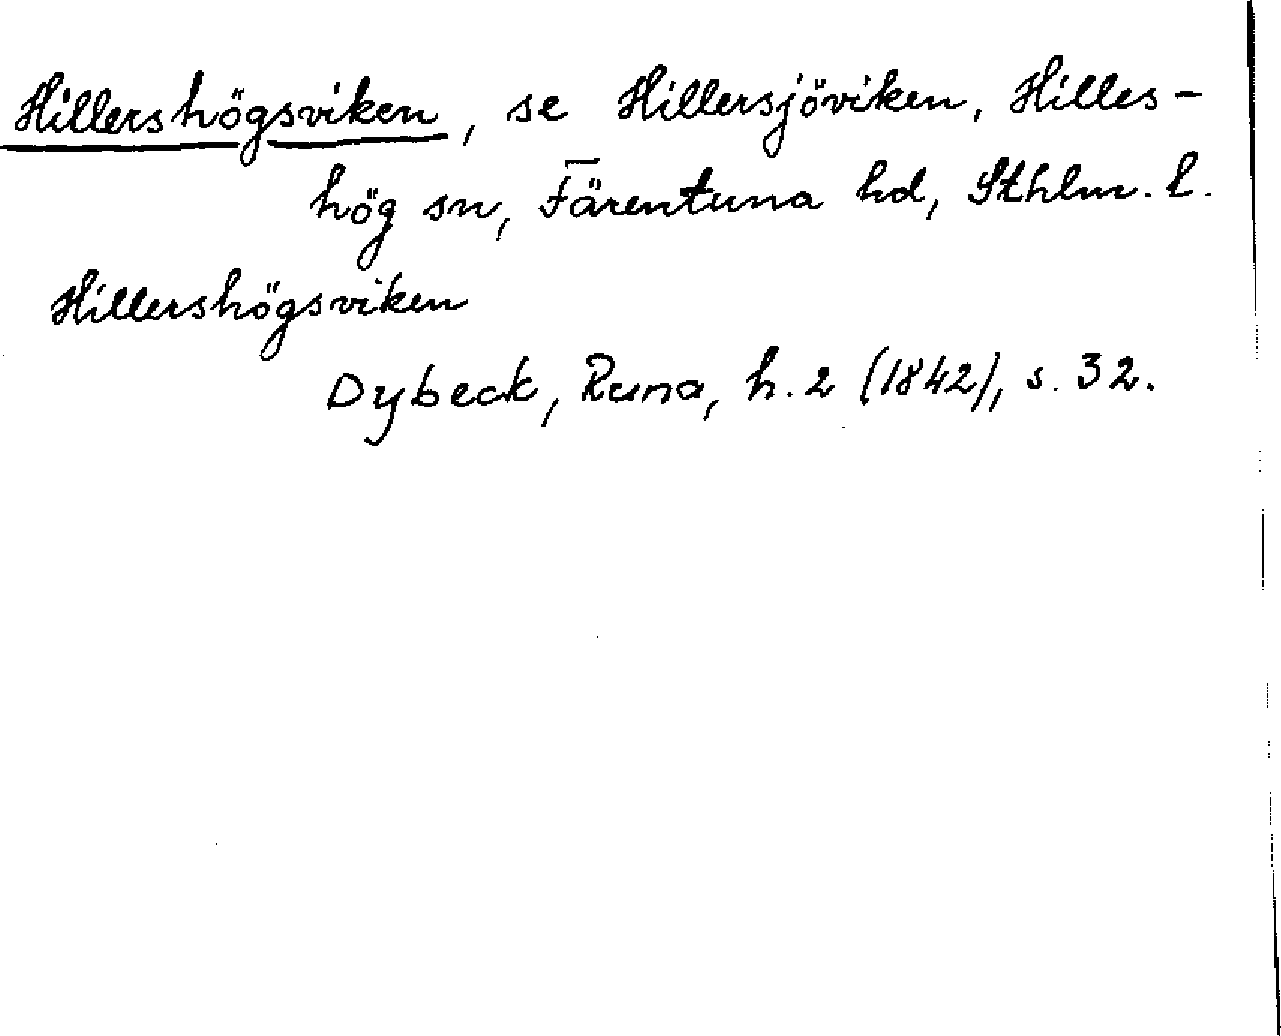 Hillershögsviken, se Hillersjöviken, Hilles-
hög sn, Färentuna hd, Sthlm. l.
Hillershögsviken
Dybeck, Runa, h. 2 (1842), s. 32.